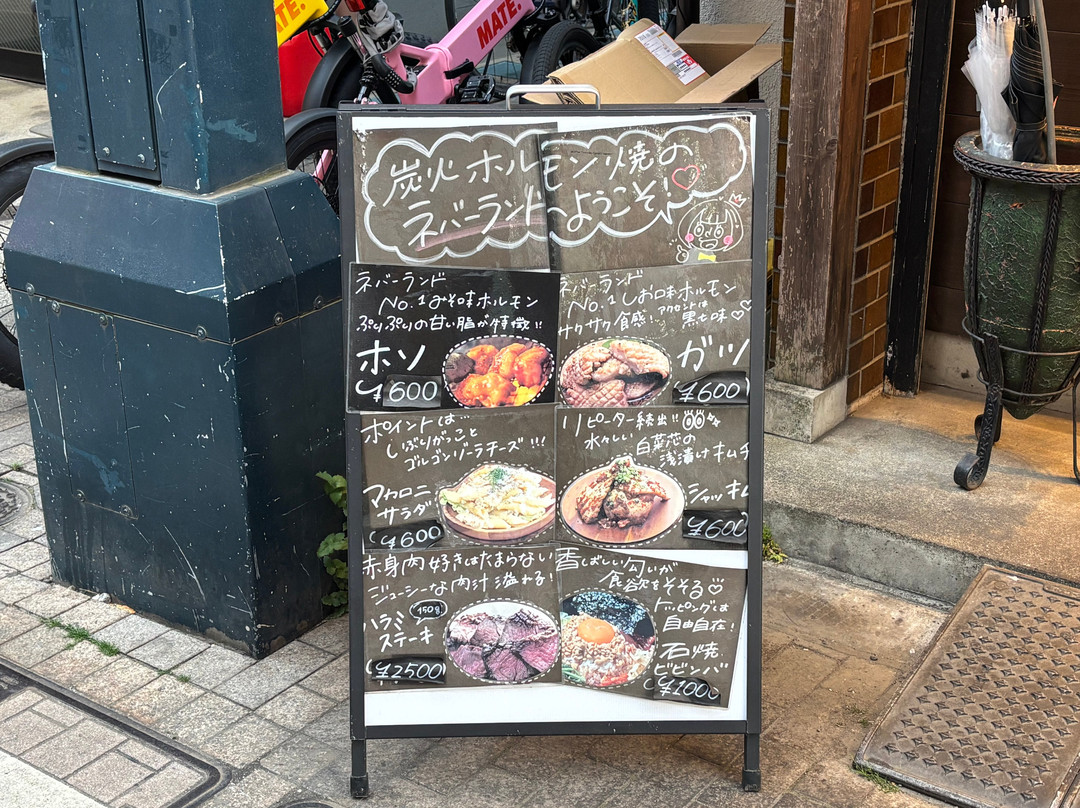 MATE.
MATE.
炭火ホルモン焼の
ネバーランドへようこそ!
ネバーランド
No.1みそ味ホルモン
ぷりぷりの甘い脂が特徴!!
ホソ
¥600
ネバーランド
No.1しお味ホルモン
サクサク食感! アクセントは
黒七味♡♡
ガツ
¥600
ポイントは…
しぼりがっこと
ゴルゴンゾーラチーズ!!!
マカロニ
サラダ
¥600
リピーター続出!!
水々しい
白菜芯の
浅漬けキムチ
シャッキム
¥600
赤身肉好きはたまらない
ジューシーな肉汁溢れる!
150g
ハラミ
ステーキ
¥2500
香ばしい匂いが
食欲をそそる♡
トッピングは
自由自在!
石焼
ビビンバ
¥1000